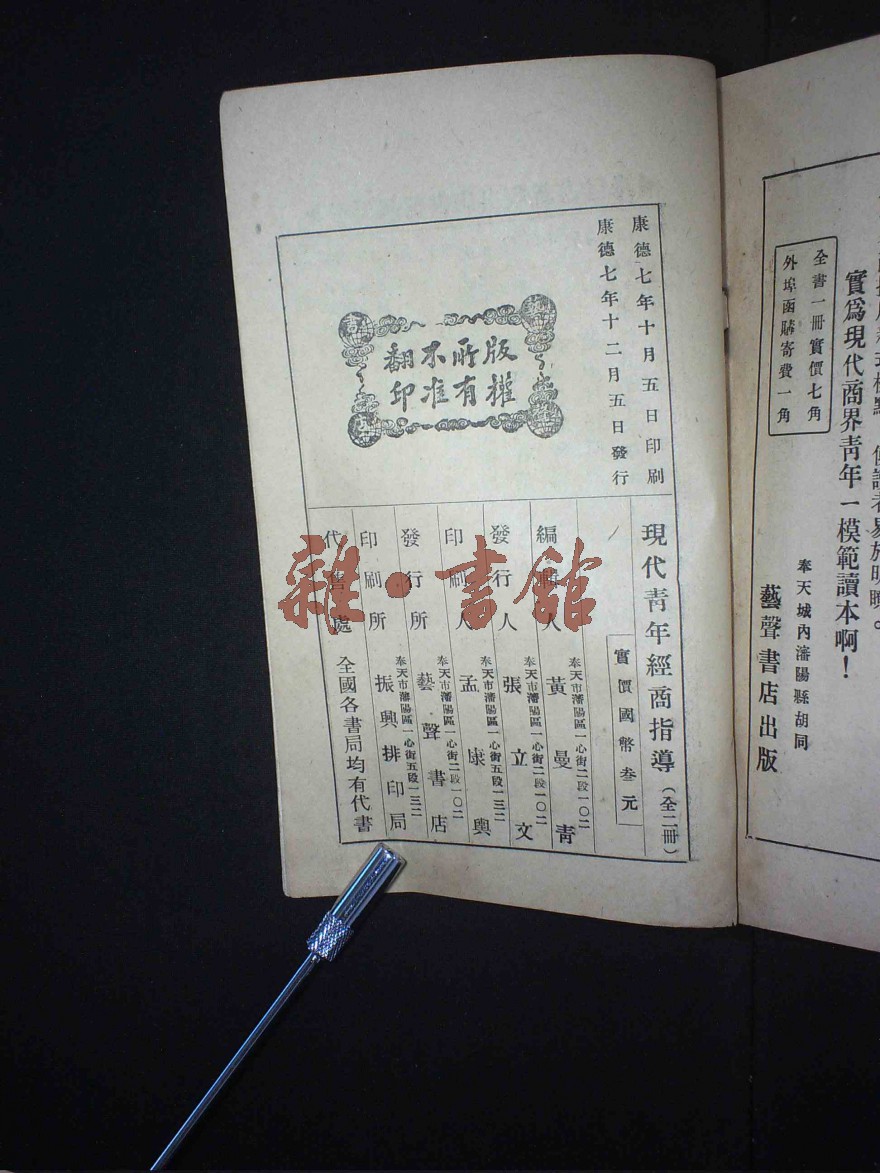 實爲現代商界靑年一模範讀本啊！
全書一冊實價七角
外埠函購寄費一角
奉天城內瀋陽縣胡同
藝聲書店出版
康德七年十月五日印刷
康德七年十二月五日發行
版權
所有
不准
翻印
現代靑年經商指導（全二冊）
實價國幣叄元
編輯人 奉天市瀋陽區一心街二段一〇二 黃曼靑
發行人 奉天市瀋陽區一心街二段一〇二 張立文
印刷人 奉天市瀋陽區一心街五段一三二 孟康興
發行所 奉天市瀋陽區一心街二段一〇二 藝聲書店
印刷所 奉天市瀋陽區一心街五段一三二 振興排印局
代售處 全國各書局均有代書
雜·書館